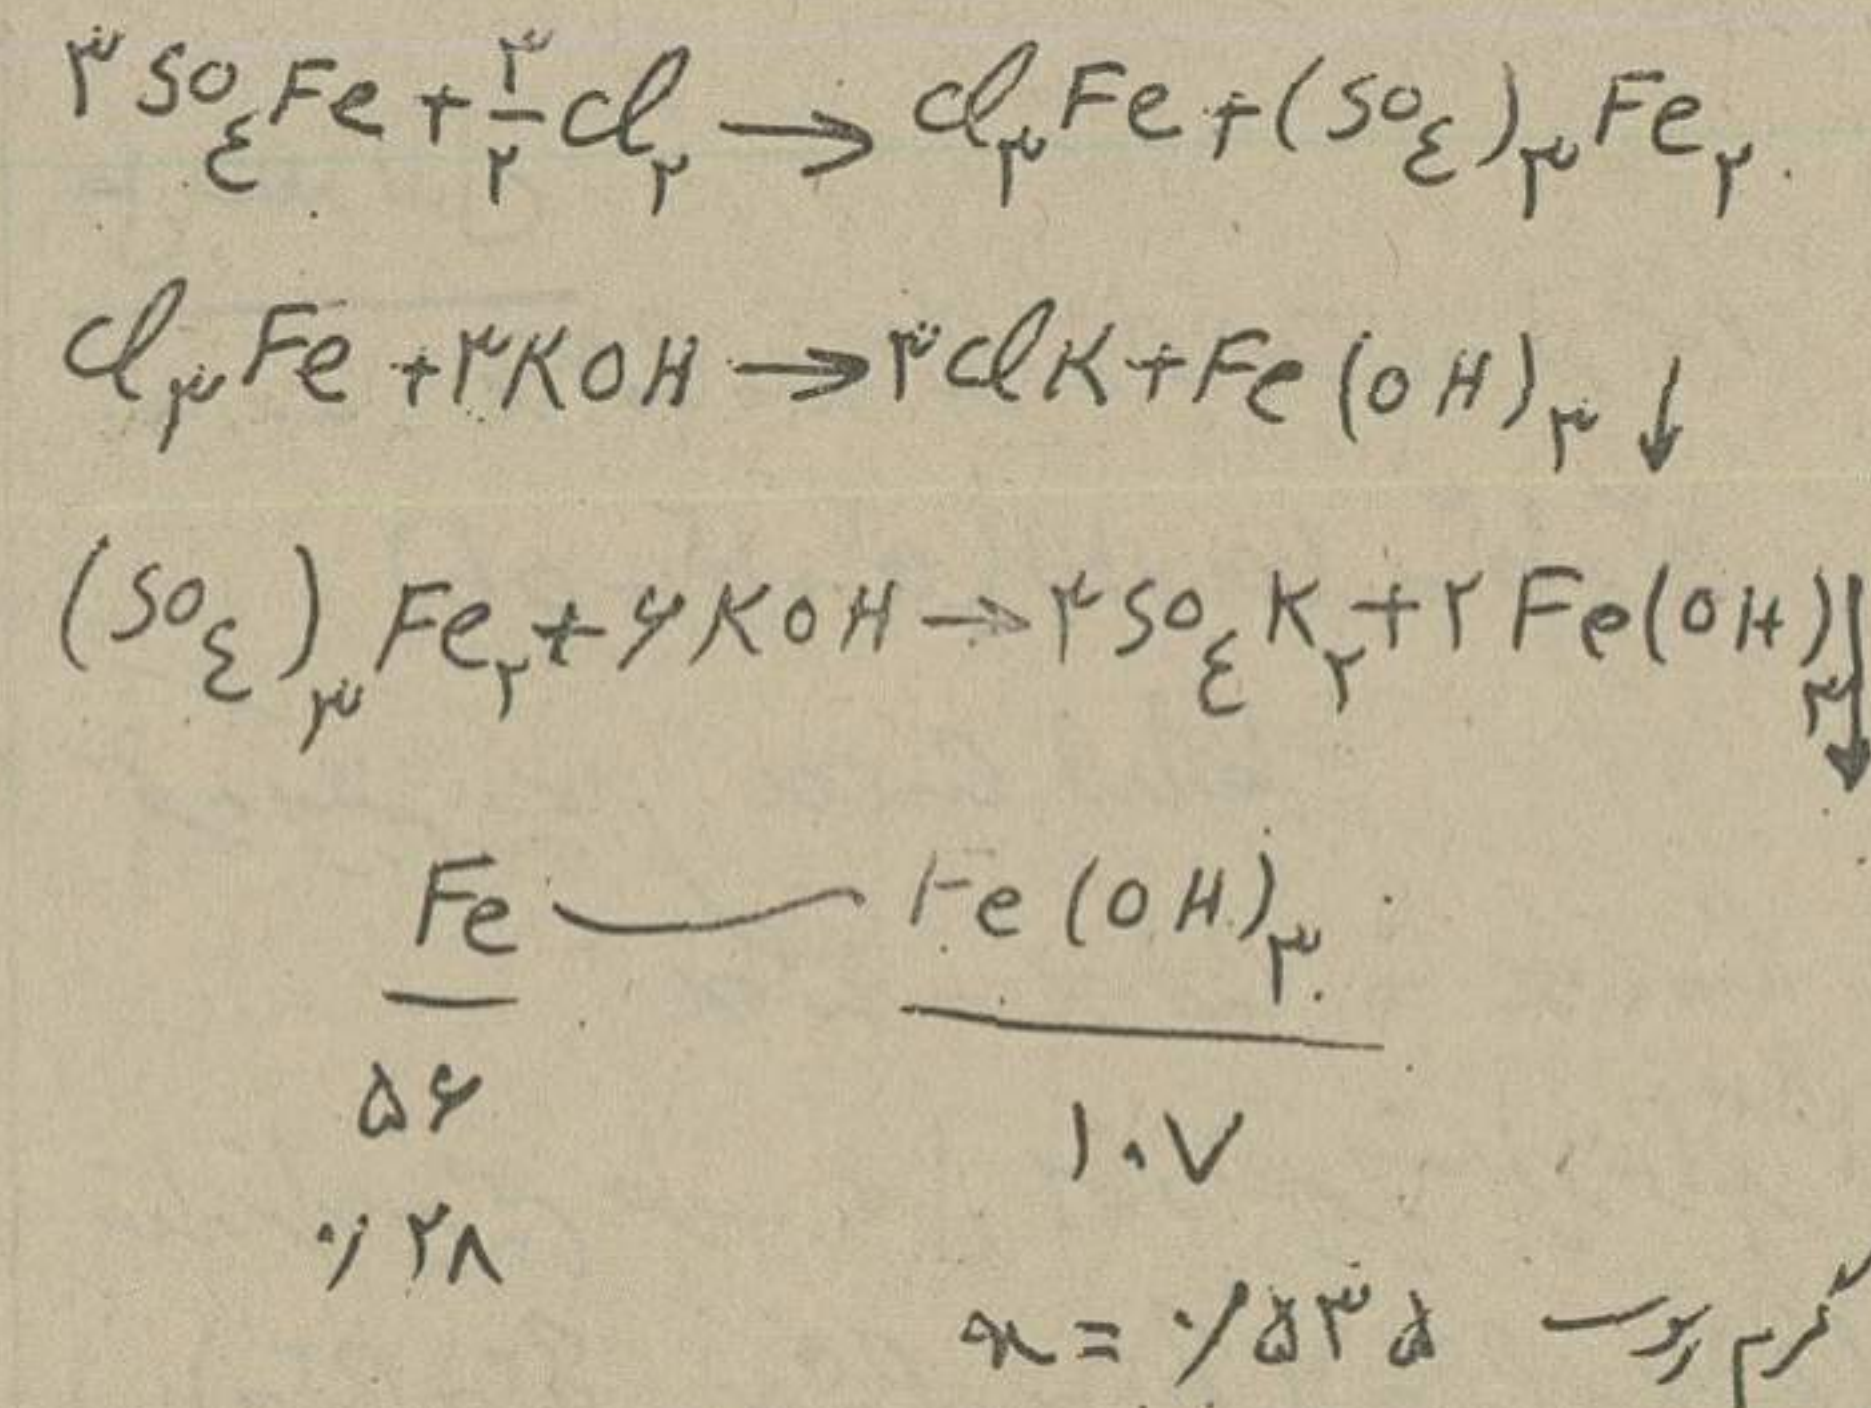 ۳SO₄Fe + ۳/۲ Cl₂ → Cl₃Fe + (SO₄)₃Fe₂
Cl₃Fe + ۳KOH → ۳ClK + Fe(OH)₃ ↓
(SO₄)₃Fe₂ + ۶KOH → ۳SO₄K₂ + ۲Fe(OH)₃ ↓
Fe — Fe(OH)₃
۵۶ ۱۰۷
۰/۲۸
x = ۰/۵۳۵ گرم رسوب